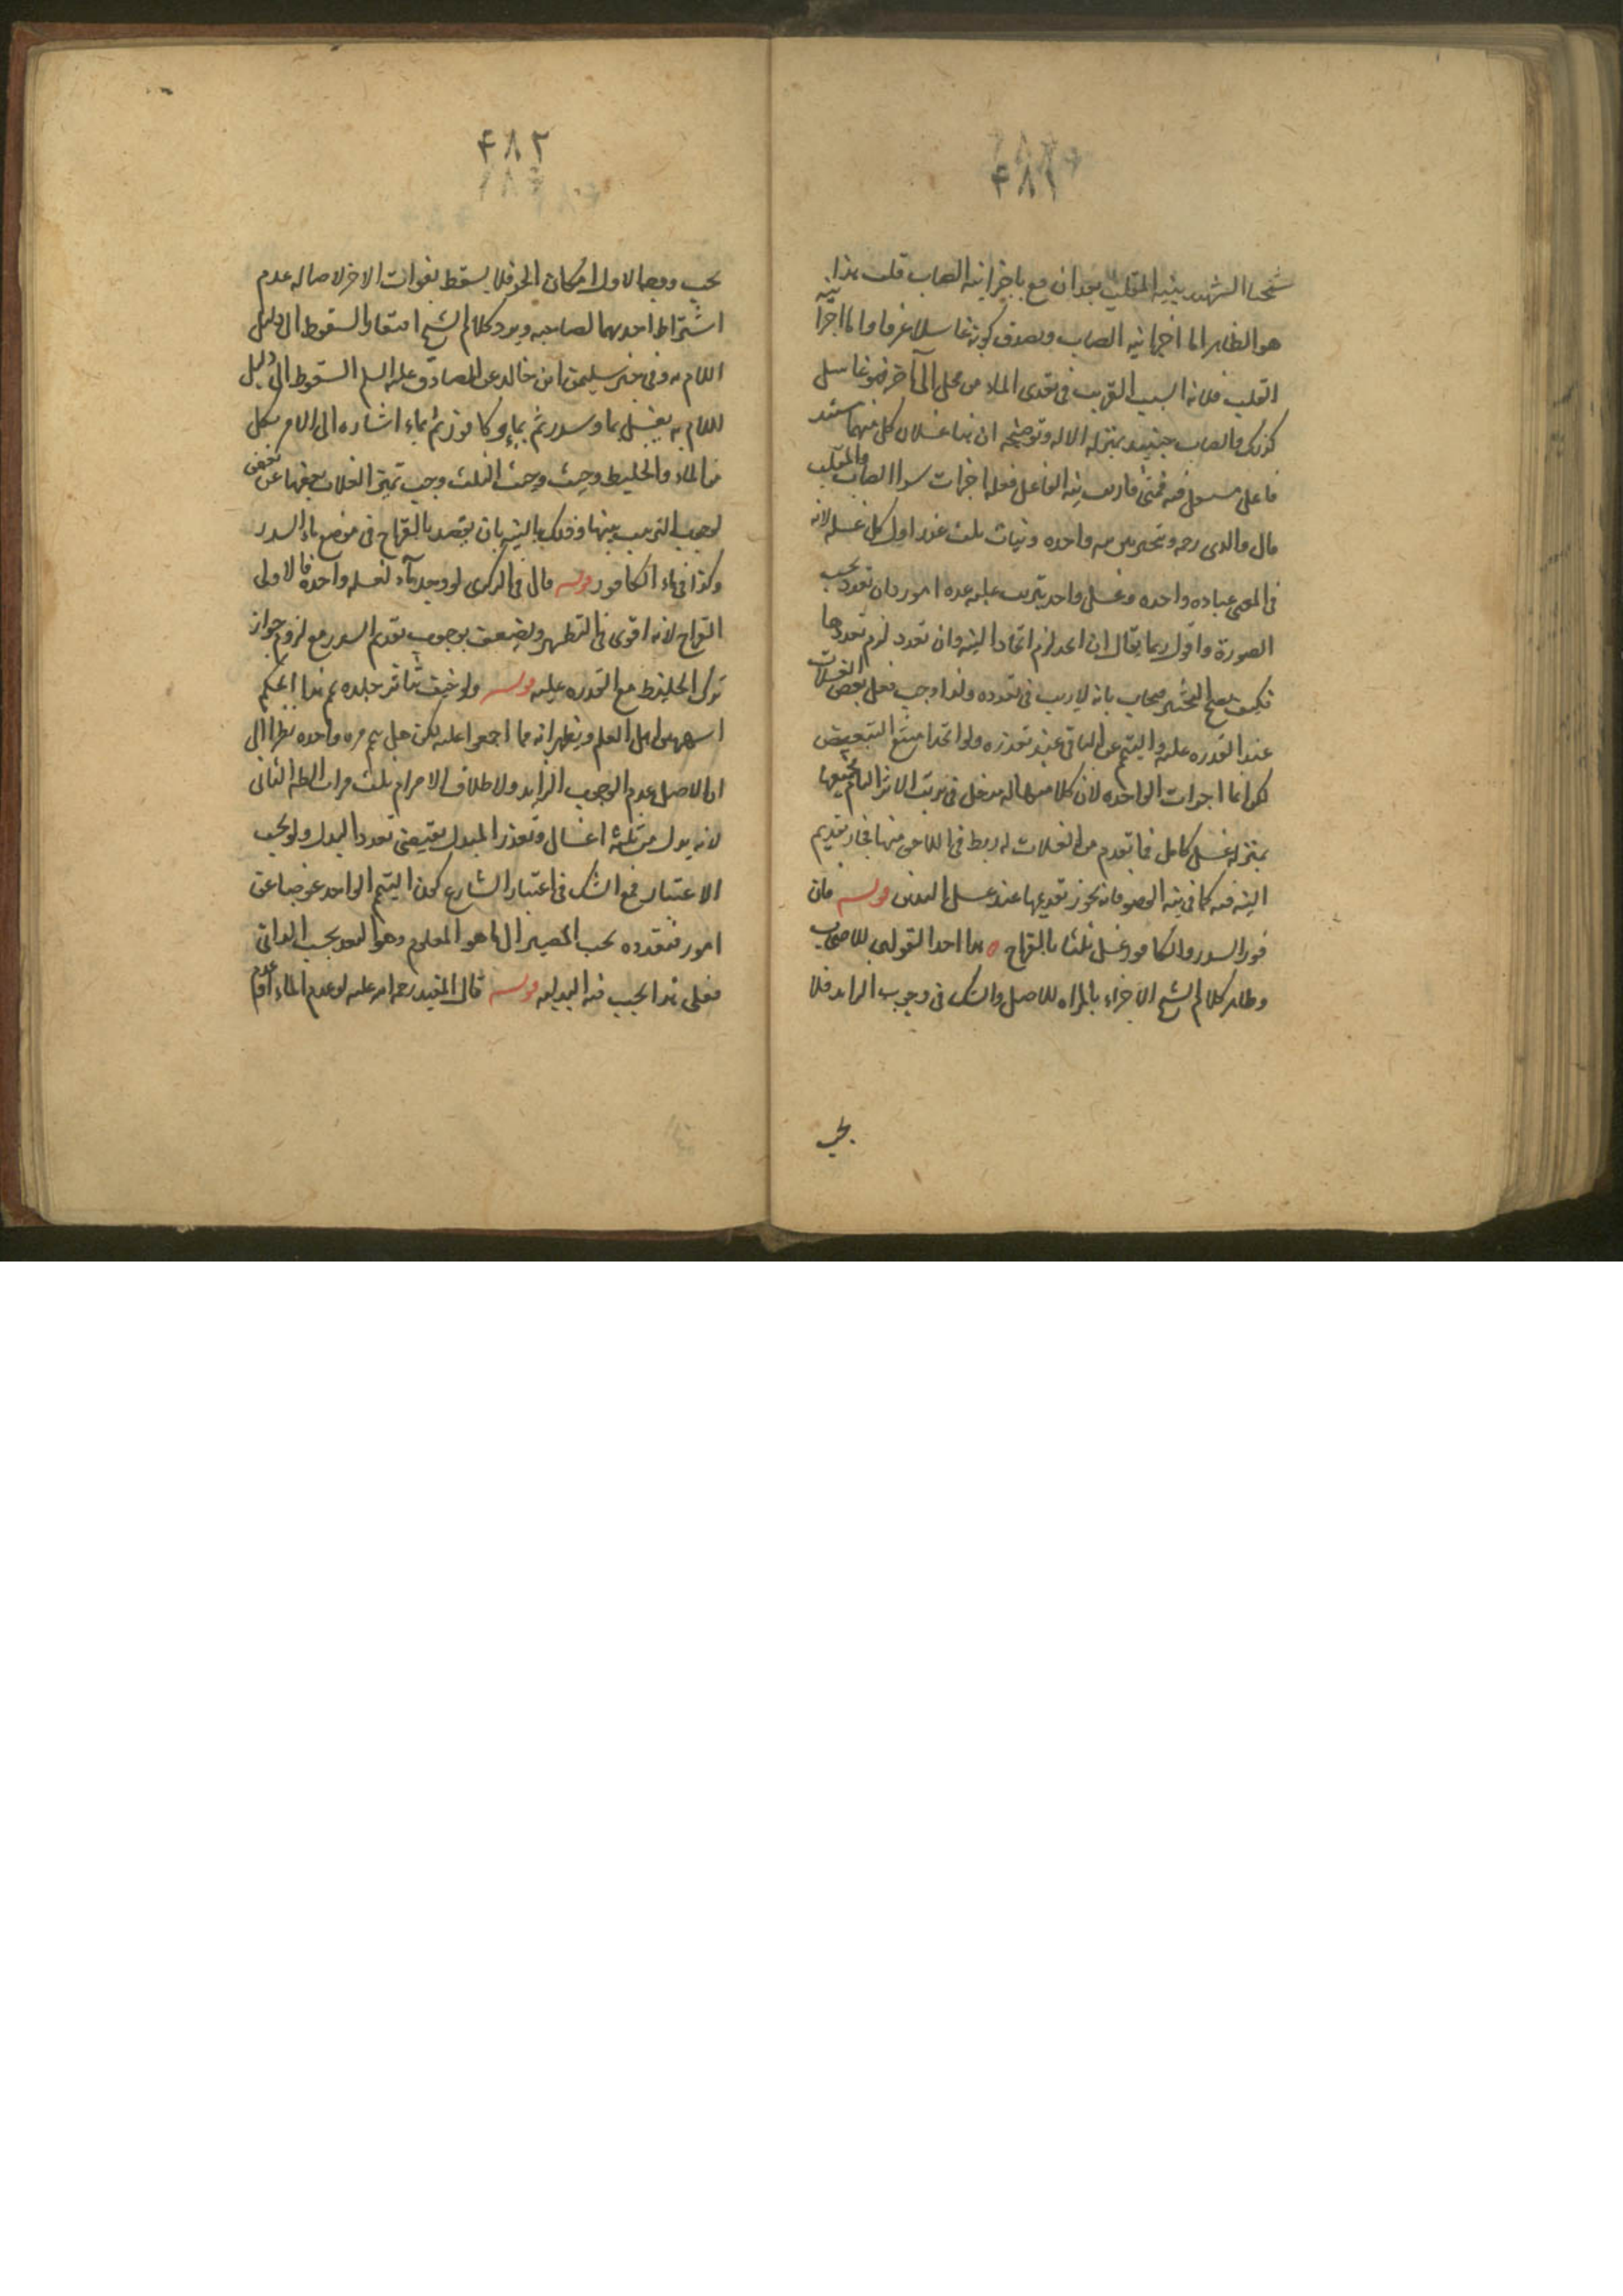 ٤٨١
شيخنا الشهيد بنية المقلب بعد ان مع باجزا نية الصاب قلت هذا
هو الظاهر اما اجزا نية الصاب وبصدق كونه غاسلا عرفا واما اجزا نية
القلب فلانه السبب القريب فى تعدى الماء من محل الى آخر فهو غاسل
كذلك والصاب حينئذ بمنزلة الاله وتوضيحه ان هنا غسلان كل منهما مستند
فاعل فمتى قارنت نية الفاعل فعله اجزات سوا الصاب والمقلب
قال والدى رحمه ويتخير بين نيه واحده ونيات ثلث عند اول كل غسله لانه
فى المعنى عباده واحده وغسل واحد يترتب عليه عده امور وان تعدد بحسب
الصورة واقول ربما يقال ان اتحد لزم اتحاد النية وان تعدد لزم تعددها
فكيف يصح التخيير ويجاب بانه لا ريب فى تعدده ولذا وجب فعل بعض الغسلات
عند القدره عليه والتيمم عن الباقى عند تعذره ولو اتحد امتنع التبعيض
لكن انما اجزات الواحده لان كلا منها له مدخل فى ترتب الاثر التام بجميعها
بمنزلة غسل كامل فما تقدم من الغسلات له ربط فى اللاحق منها فجاز تقديم
النية فيه كما فى نية الوضو فانه يجوز تقديمها عند غسل اليدين قوله فان
فقد السدر والكافور غسل ثلثا بالقراح ه هذا احد القولين للاصحاب
وظاهر كلام الشيخ الاجزاء بالمراه للاصل والشك فى وجوب الزايد فلا
يجب
٤٨٢
يجب ووجه الاول امكان الجز فلا يسقط بفوات الاخر لاصاله عدم
اشتراط احدهما لصاحبه ويرد كلام الشيخ افتقار السقوط الى دليل
اللام به وفى خبر سليمن ابن خالد عن الصادق عليه السلم السقوط الى دليل
للام به يغسل بماء وسدر ثم بماء وكافور ثم بماء اشاره الى الامر بكل
من الماء والخليط وحيث وجبت الثلث وجب تميز الغسلات بعضها عن بعض
لوجوب الترتيب بينها وذلك بالنية بان يقصد بالقراح فى موضع ماء السدر
وكذا فى ماء الكافور قوله قال فى الذكرى لو وجد ماء لغسله واحدة فالاولى
القراح لانه اقوى فى التطهير ويضعف بوجوب تقديم السدر مع لزوم جواز
ترك الخليط مع القدره عليه قوله ولو خيف تناثر جلده يمم هذا الحكم
اسهر بين اهل العلم ويظهر انه مما اجمعوا عليه لكن هل ييمم مره واحده نظرا الى
ان الاصل عدم الوجوب الزايد ولاطلاق الامر ام ثلث مرات الظاهر الثانى
لانه بدل من ثلثة اغسال وتعذر المبدل يقتضى تعدد البدل ولو بحسب
الاعتبار فمع الشك فى اعتبار الشارع كون التيمم الواحد عوضا عن
امور متعدده يجب المصير الى ما هو المعلوم وهو التعدد بحسب الذاتى
فعلى هذا يجب فيه البدليه قوله قال المفيد رحمه الله عليه لو عدم الماء او عدم